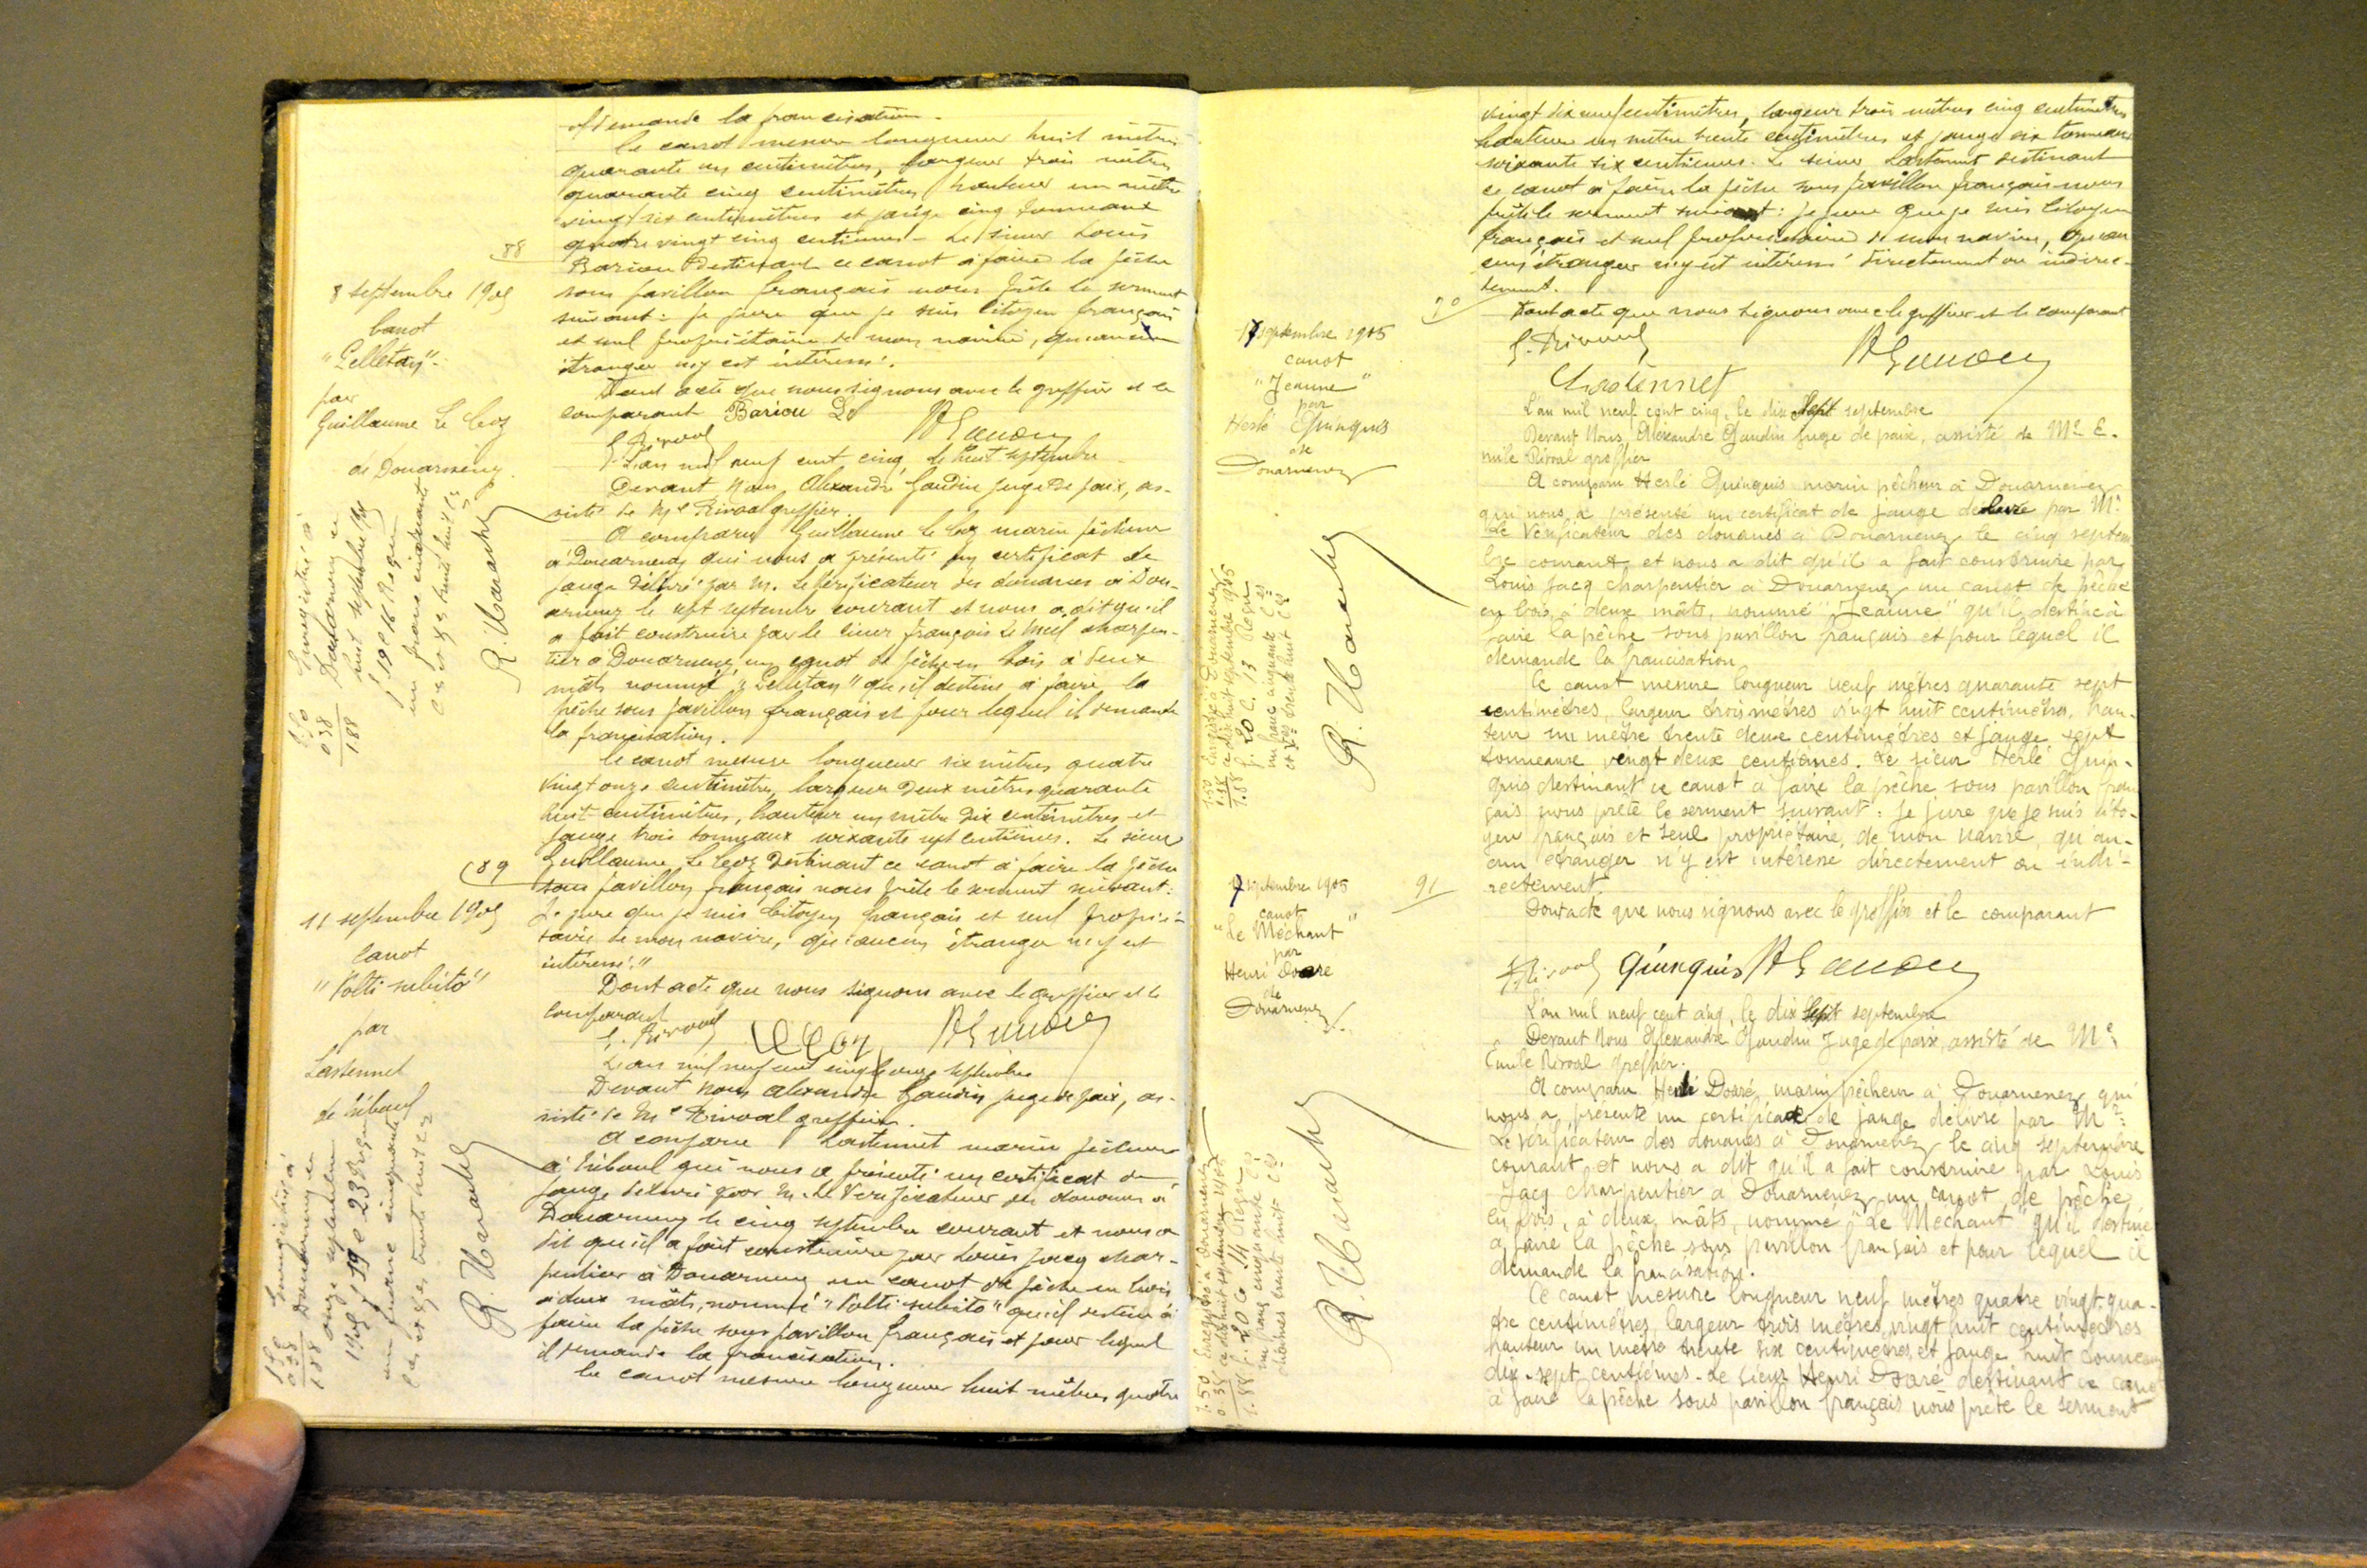 et demande la francisation.
Ce canot mesure longueur huit mètres
quarante un centimètres, largeur trois mètres
quarante cinq centimètres hauteur un mètre
vingt six centimètres et jauge cinq tonneaux
quatre vingt cinq centièmes - Le sieur Louis
Bariou destinant ce canot à faire la pêche
sous pavillon français nous prête le serment
suivant : je jure que je suis citoyen français
et seul propriétaire de mon navire, qu'aucun
étranger n'y est intéressé.
Dont acte que nous signons avec le greffier et le
comparant Bariou Ls
E. Rivoal
88
8 septembre 1905
Canot
"Pelletan"
par
Guillaume Le Coz
de Douarnenez
L'an mil neuf cent cinq, le huit septembre
Devant Nous, Alexandre Gaudin juge de paix, as-
sisté de Me Rivoal greffier.
A comparu Guillaume Le Coz marin pêcheur
à Douarnenez qui nous a présenté un certificat de
jauge délivré par M. Le Vérificateur des douanes à Dou-
arnenez le sept septembre courant et nous a dit qu'il
a fait construire par le sieur français Le Meil charpen-
tier à Douarnenez, un canot de pêche en bois à deux
mâts nommé "Pelletan" qu'il destine à faire la
pêche sous pavillon français et pour lequel il demande
la francisation.
Ce canot mesure longueur six mètres quatre
vingt onze centimètres, largeur deux mètres quarante
huit centimètres, hauteur un mètre dix centimètres et
jauge trois tonneaux soixante sept centièmes. Le sieur
Guillaume Le Coz destinant ce canot à faire la pêche
sous pavillon français nous prête le serment suivant :
Je jure que je suis citoyen français et seul proprié-
taire de mon navire, qu'aucun étranger n'y est
intéressé."
Dont acte que nous signons avec le greffier et le
comparant
E. Rivoal Le Coz
Enregistré à
Douarnenez le
huit septembre 1905
f° 19 C 16 Reçu
un franc cinquante
Ces et Xes trente huit Ces
1.50
0.38
1.88
R. Marachy
89
11 septembre 1905
Canot
"Volti subito"
par
Lastennet
de Tréboul
L'an mil neuf cent cinq le onze septembre
Devant Nous Alexandre Gaudin juge de paix, as-
sisté de Me Rivoal greffier.
A comparu Lastennet marin pêcheur
à Tréboul qui nous a présenté un certificat de
jauge délivré par M. Le Vérificateur des douanes à
Douarnenez le cinq septembre courant et nous a
dit qu'il a fait construire par Louis Jacq char-
pentier à Douarnenez un canot de pêche en bois
à deux mâts, nommé "Volti subito" qu'il destine à
faire la pêche sous pavillon français et pour lequel
il demande la francisation.
Ce canot mesure longueur huit mètres, quatre
Enregistré à
Douarnenez le
onze septembre
1905 f° 19 C 23 Reçu
un franc cinquante
Ces et Xes trente huit Ces
1.50
0.38
1.88
R. Marachy
vingt dix neuf centimètres, largeur trois mètres cinq centimètres
hauteur un mètre trente centimètres et jauge six tonneaux
soixante six centièmes. Le sieur Lastennet destinant
ce canot à faire la pêche sous pavillon français nous
prête le serment suivant : je jure que je suis citoyen
français et seul propriétaire de mon navire, qu'au
cun étranger n'y est intéressé directement ou indirec-
tement.
Dont acte que nous signons avec le greffier et le comparant
E. Rivoal
90
17 septembre 1905
canot
"Jeanne"
par
Herlé Quinquis
de
Douarnenez
L'an mil neuf cent cinq, le dix sept septembre
Devant Nous, Alexandre Gaudin juge de paix, assisté de Me E-
mile Rivoal greffier
A comparu Herlé Quinquis marin pêcheur à Douarnenez
qui nous a présenté un certificat de jauge délivré par Mr
Le Vérificateur des douanes à Douarnenez le cinq septem
bre courant, et nous a dit qu'il a fait construire par
Louis Jacq charpentier à Douarnenez un canot de pêche
en bois, à deux mâts, nommé "Jeanne" qu'il destine à
faire la pêche sous pavillon français et pour lequel il
demande la francisation
Ce canot mesure longueur neuf mètres quarante sept
centimètres, largeur trois mètres vingt huit centimètres, hau-
teur un mètre trente deux centimètres et jauge sept
tonneaux vingt deux centièmes. Le sieur Herlé Quin-
quis destinant ce canot à faire la pêche sous pavillon fran
çais nous prête le serment suivant : Je jure que je suis cito-
yen français et seul propriétaire, de mon navire, qu'au-
cun étranger n'y est intéressé directement ou indi-
rectement.
Dont acte que nous signons avec le greffier et le comparant
E. Rivoal Quinquis
Enregistré à Douarnenez
ce dix huit septembre 1905
f. 20 C. 13 Reçu
un franc cinquante Ces
et Xes trente huit Ces
1.50
0.38
1.88
R. Marachy
91
17 septembre 1905
canot
"Le Méchant"
par
Henri Doaré
de
Douarnenez
L'an mil neuf cent cinq, le dix sept septembre
Devant Nous Alexandre Gaudin Juge de paix, assisté de Me
Emile Rivoal greffier.
A comparu Henri Doaré, marin pêcheur à Douarnenez qui
nous a présenté un certificat de jauge délivré par Mr
Le Vérificateur des douanes à Douarnenez le cinq septembre
courant et nous a dit qu'il a fait construire par Louis
Jacq charpentier à Douarnenez un canot de pêche
en bois, à deux mâts, nommé "Le Méchant" qu'il destine
à faire la pêche sous pavillon français et pour lequel il
demande la francisation.
Ce canot mesure longueur neuf mètres quatre vingt-qua-
tre centimètres, largeur trois mètres vingt huit centimètres
hauteur un mètre trente six centimètres, et jauge huit tonneaux
dix-sept centièmes - Le sieur Henri Doaré destinant ce canot
à faire la pêche sous pavillon français nous prête le serment
Enregistré à Douarnenez
ce dix huit septembre 1905
f. 20 C. 14 Reçu
un franc cinquante Ces
décimes trente huit Ces
1.50
0.38
1.88
R. Marachy